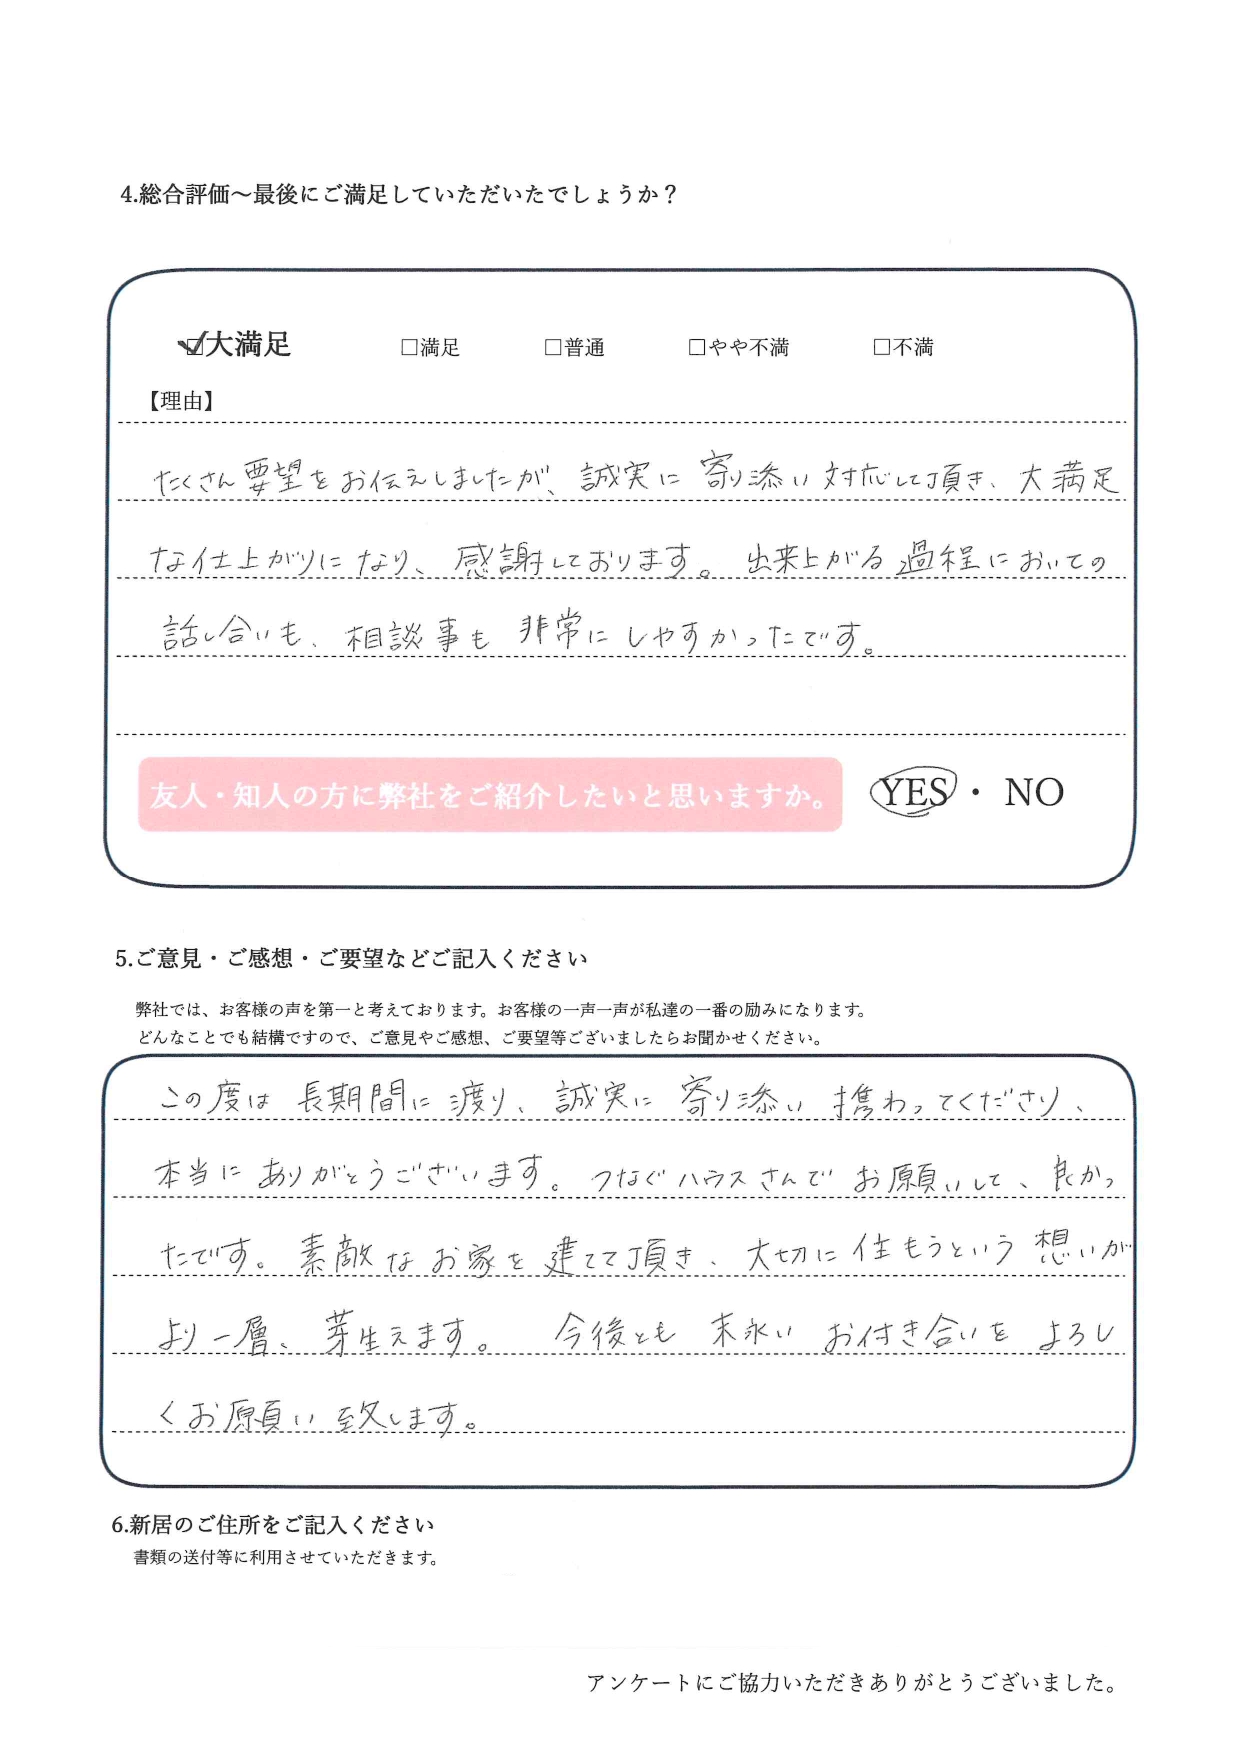 4.総合評価～最後にご満足していただいたでしょうか？
☑大満足 □満足 □普通 □やや不満 □不満
【理由】
たくさん要望をお伝えしましたが、誠実に寄り添い対応して頂き、大満足
な仕上がりになり、感謝しております。出来上がる過程においての
話し合いも、相談事も非常にしやすかったです。
友人・知人の方に弊社をご紹介したいと思いますか。 YES・NO
5.ご意見・ご感想・ご要望などご記入ください
弊社では、お客様の声を第一と考えております。お客様の一声一声が私達の一番の励みになります。
どんなことでも結構ですので、ご意見やご感想、ご要望等ございましたらお聞かせください。
この度は長期間に渡り、誠実に寄り添い携わってくださり、
本当にありがとうございます。つなぐハウスさんでお願いして、良かっ
たです。素敵なお家を建てて頂き、大切に住もうという想いが
より一層、芽生えます。今後とも末永いお付き合いをよろし
くお願い致します。
6.新居のご住所をご記入ください
書類の送付等に利用させていただきます。
アンケートにご協力いただきありがとうございました。